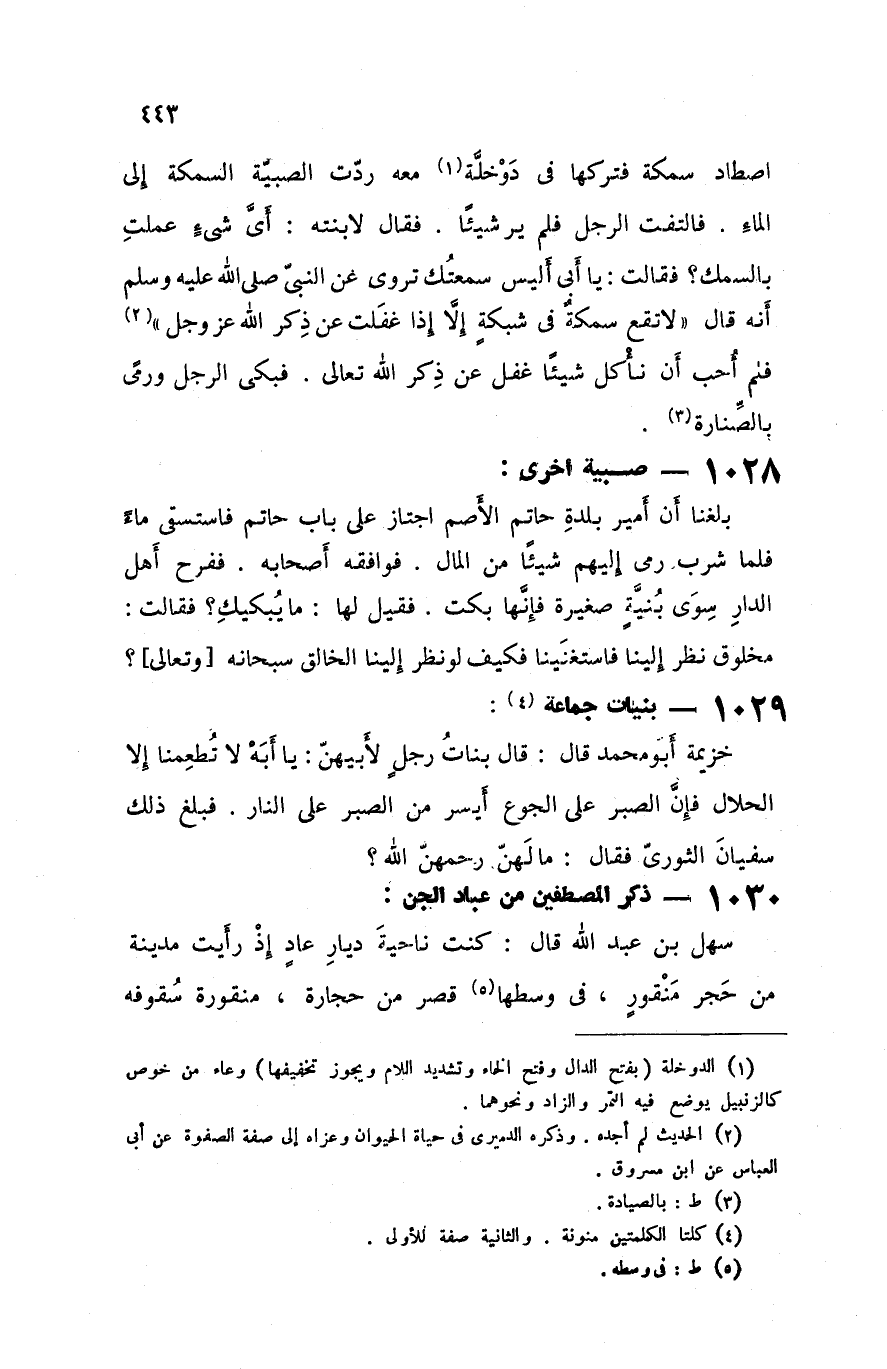 ٤٤٣
اصطاد سمكة فتركها فى دَوْخلَّة(١) معه ردّت الصبيّة السمكة إلى
الماءِ . فالتفت الرجل فلم يرشيئًا . فقال لابنته : أَىَّ شىءٍ عملتِ
بالسمك؟ فقالت : يا أَبى أَليس سمعتُك تروى عن النبىّ صلى الله عليه وسلم
أَنه قال «لاتقع سمكةٌ فى شبكةٍ إلَّا إذا غفَلت عن ذِكر الله عز وجل»(٢)
فلم أُحب أَن نأْكل شيئًا غفل عن ذِكر الله تعالى . فبكى الرجل ورمَى
بالصِّنارة(٣) .
١٠٢٨ — صبية اخرى :
بلغنا أَن أَمير بلدةِ حاتم الأَصم اجتاز على باب حاتم فاستسقى ماءً
فلما شرب رمى إليهم شيئًا من المال . فوافقه أَصحابه . ففرح أَهل
الدارِ سِوَى بُنيَّةٍ صغيرة فإنَّها بكت . فقيل لها : مايُبكيكِ؟ فقالت :
مخلوق نظر إلينا فاستغنَينا فكيف لونظر إلينا الخالق سبحانه [وتعالى] ؟
١٠٢٩ — بنيات جماعة (٤) :
خزيمة أَبومحمد قال : قال بناتُ رجلٍ لأَبيهنّ : يا أَبَهْ لا تُطعِمنا إلا
الحلال فإنَّ الصبر على الجوع أَيسر من الصبر على النار . فبلغ ذلك
سفيانَ الثورىّ فقال : ما لَهنّ رحمهنّ الله ؟
١٠٣٠ — ذكر المصطفين من عباد الجن :
سهل بن عبد الله قال : كنت ناحيةَ ديارِ عادٍ إذْ رأَيت مدينة
من حَجر مَنْقورٍ ، فى وسطها(٥) قصر من حجارة ، منقورة سُقوفه
(١) الدوخلة (بفتح الدال وفتح الخاء وتشديد اللام ويجوز تخفيفها) وعاء من خوص
كالزنبيل يوضع فيه التمر والزاد ونحوهما .
(٢) الحديث لم أجده . وذكره الدميرى فى حياة الحيوان وعزاه إلى صفة الصفوة عن أبى
العباس عن ابن مسروق .
(٣) ط : بالصيادة .
(٤) كلتا الكلمتين منونة . والثانية صفة للأولى .
(٥) ط : فى وسطه .